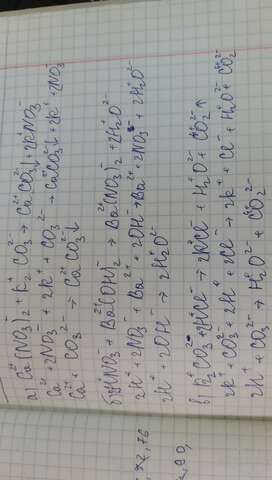 а) Ca(NO₃)₂ + K₂CO₃ → CaCO₃↓ + 2KNO₃
Ca²⁺ + 2NO₃⁻ + 2K⁺ + CO₃²⁻ → CaCO₃↓ + 2K⁺ + 2NO₃⁻
Ca²⁺ + CO₃²⁻ → CaCO₃↓
б) 2HNO₃ + Ba(OH)₂ → Ba(NO₃)₂ + 2H₂O
2H⁺ + 2NO₃⁻ + Ba²⁺ + 2OH⁻ → Ba²⁺ + 2NO₃⁻ + 2H₂O
2H⁺ + 2OH⁻ → 2H₂O
в) K₂CO₃ + 2HCl → 2KCl + H₂O + CO₂↑
2K⁺ + CO₃²⁻ + 2H⁺ + 2Cl⁻ → 2K⁺ + Cl⁻ + H₂O + CO₂
2H⁺ + CO₃²⁻ → H₂O + CO₂